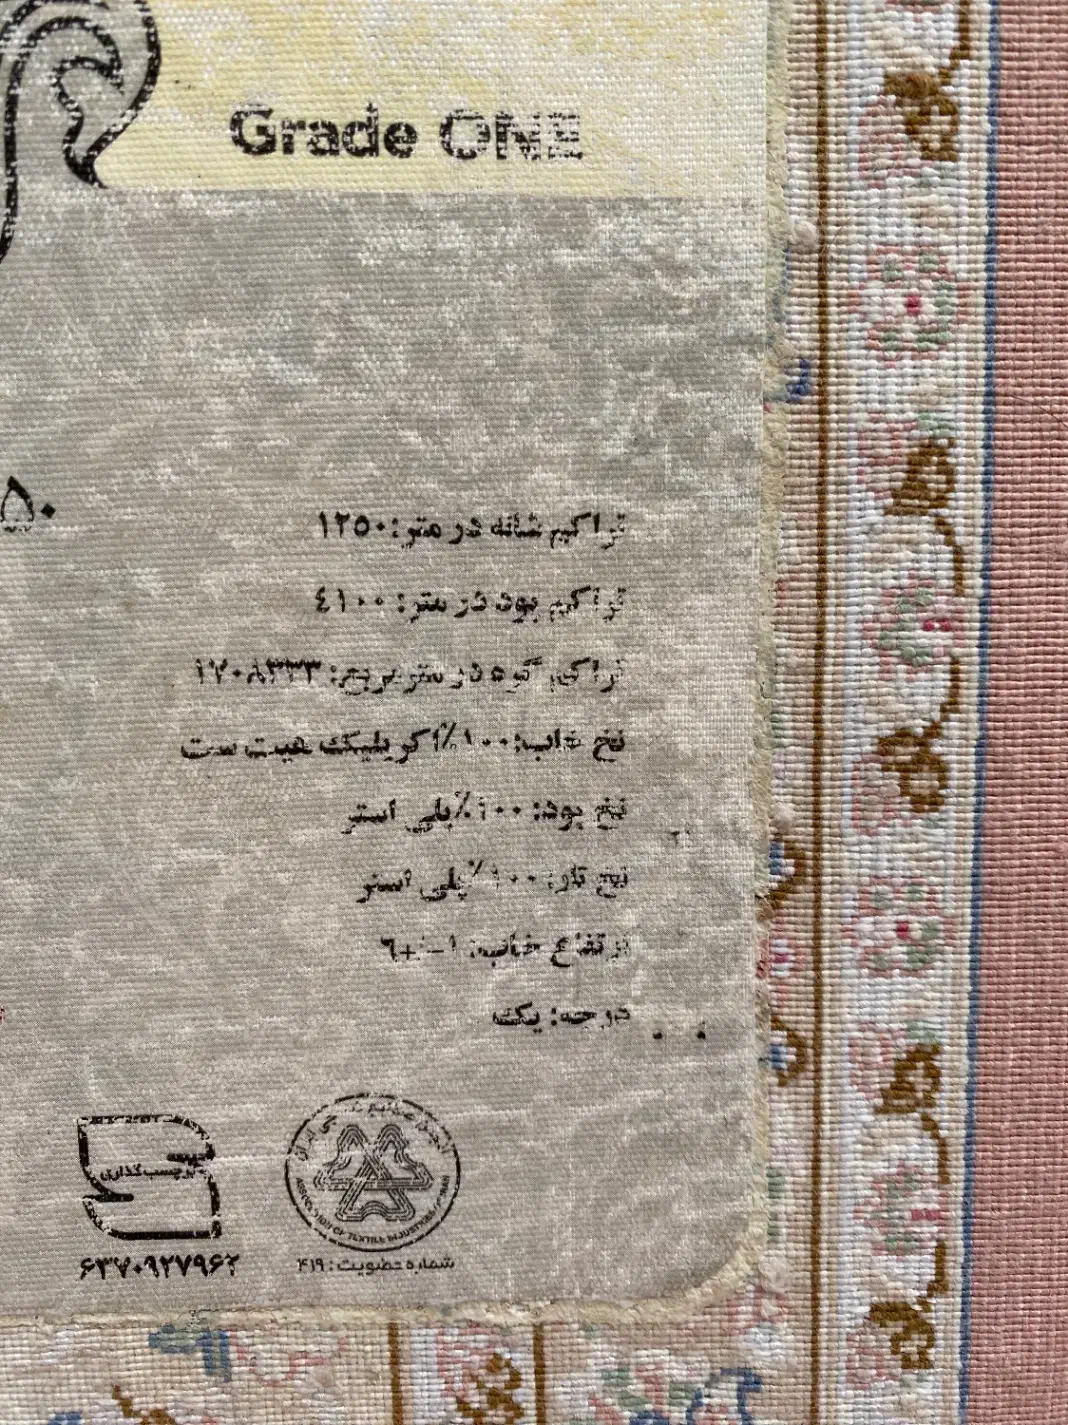 Grade ONE
۵۰
تراکم شانه در متر: ۱۲۵۰
تراکم پود در متر: ٤۱۰۰
تراکم گره در متر مربع: ۱۷۰۸۳۳۳
نخ خاب: ۱۰۰٪ اکریلیک هیت ست
نخ پود: ۱۰۰٪ پلی استر
نخ تار: ۱۰۰٪ پلی استر
ارتفاع خاب: ۱-+٦
درجه: یک
برچسب‌گذاری
انجمن صنایع نساجی ایران
ASSOCIATION OF TEXTILE INDUSTRIES IRAN
۶۳۷۰۹۲۷۹۶۲
شماره عضویت: ۴۱۹